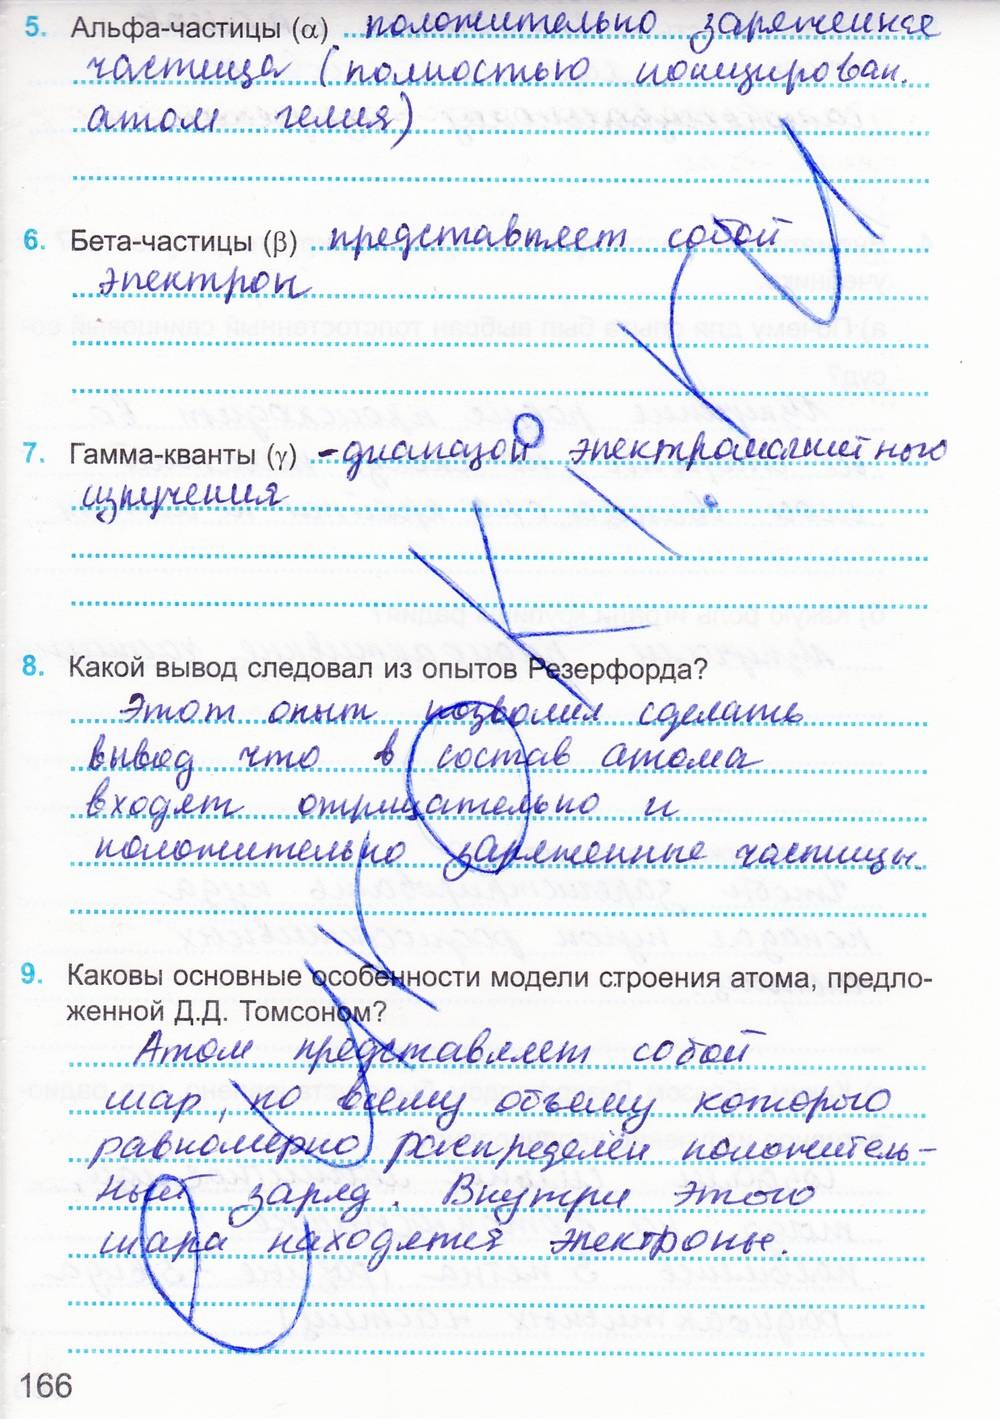 5. Альфа-частицы (α) положительно заряженная
частица (полностью ионизирован.
атом гелия)
6. Бета-частицы (β) представляет собой
электрон
7. Гамма-кванты (γ) -диапазон электромагнитного
излучения
8. Какой вывод следовал из опытов Резерфорда?
Этот опыт позволил сделать
вывод что в состав атома
входят отрицательно и
положительно заряженные частицы.
9. Каковы основные особенности модели строения атома, предло-
женной Д.Д. Томсоном?
Атом представляет собой
шар, по всему объему которого
равномерно распределён положитель-
ный заряд. Внутри этого
шара находятся электроны.
166